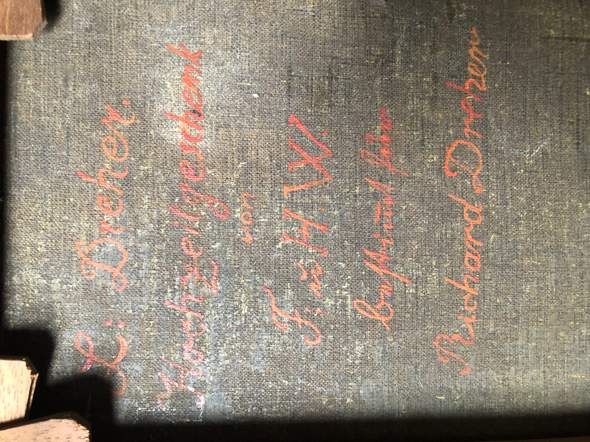 L: Dreher.
Hochzeitgeschenk
von
F. u H W.
bestimmt für
Richard Dreher